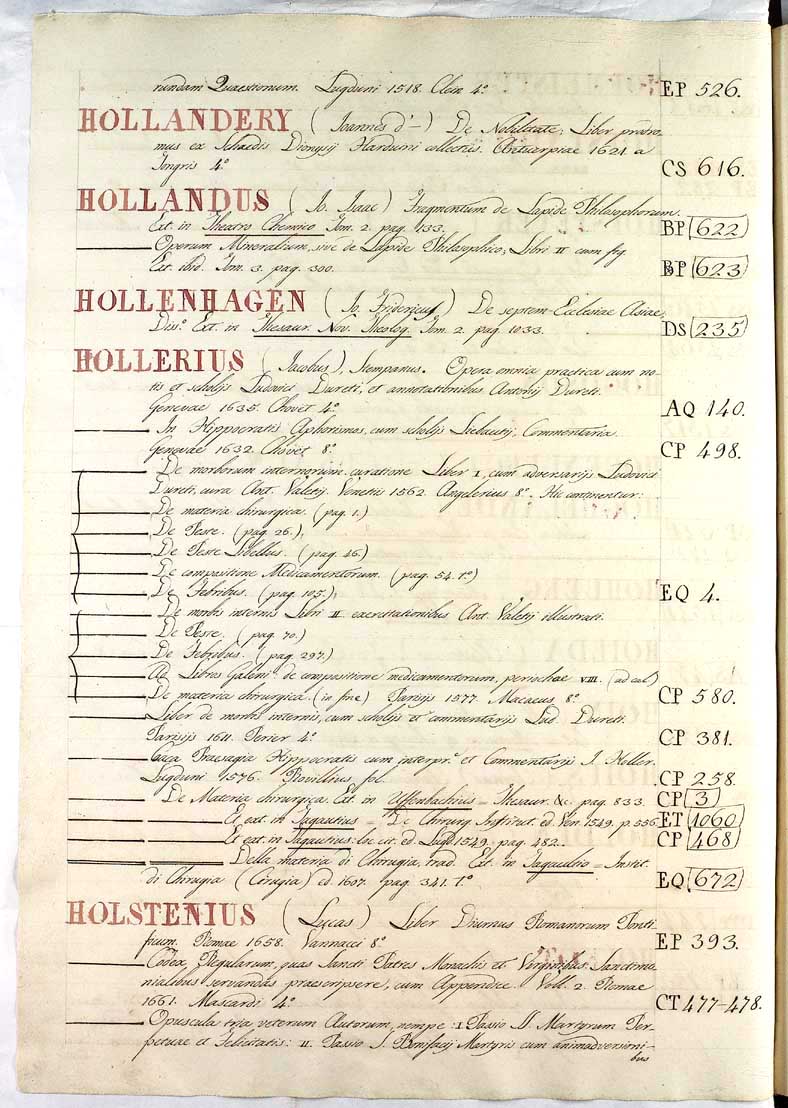 rundam Quaestionum. Lugduni 1518. Clein 4.º EP 526.
HOLLANDERY (Joannes d'—) De Nobilitate; Liber prodro-
mus ex Schaedis Dionysij Harduini collectus. Antuerpiae 1621 a
Tongris 4.º CS 616.
HOLLANDUS (Jo. Isaac) Fragmentum de Lapide Philosophorum.
Ext. in Theatro Chemico Tom. 2. pag. 133. BP 622
Operum Mineralium, sive de Lapide Philosophico; Libri II cum fig.
Ext. ibid. Tom. 3. pag. 300. BP 623
HOLLENHAGEN (Jo. Fridericus) De septem Ecclesiae Asiae,
Diss.º Ext. in Thesaur. Nov. Theolog. Tom. 2. pag. 1033. DS 235
HOLLERIUS (Jacobus), Stempanus. Opera omnia practica cum no-
tis et scholijs Ludovici Dureti, et annotationibus Antonij
Genevae 1635. Chovet 4.º AQ 140.
In Hippocratis Aphorismos, cum scholijs Liebautij, Commentaria.
Genevae 1632. Chovet 8.º CP 498.
De morborum internorum curatione Liber I, cum adversarijs Ludovici
Dureti, cura Ant. Valetij. Venetiis 1562. Angelerius 8.º Hic continentur:
De materia chirurgica. (pag. 1.)
De Peste. (pag. 26.)
De Peste Libellus. (pag. 46.)
De compositione Medicamentorum. (pag. 54. t.º)
De Febribus. (pag. 105.) EQ 4.
De morbis internis Libri II exercitationibus Ant. Valetij illustrati.
De Peste. (pag. 70.)
De Febribus. (pag. 297.)
Ad Libros Galeni de compositione medicamentorum, periochae VIII. (ad cal.)
De materia chirurgica. (in fine) Parisijs 1577. Macaeus 8.º CP 580.
Liber de morbis internis, cum scholijs et commentarijs Lud. Dureti.
Parisijs 1611. Perier 4.º CP 381.
Coaca Praesagia Hippocratis cum interpr.e et Commentarijs J. Holler.
Lugduni 1576. Rovillius fol. CP 258.
De Materia chirurgica. Ext. in Uffenbachius = Thesaur. &c. pag. 833. CP 3
Et ext. in Tagautius = De Chirurg. Institut. ed. Ven. 1549. p. 336. ET 1060
Et ext. in Tagautius: loc. cit. ed. Lugd. 1549. pag. 482. CP 468
Della materia di Chirugia, trad. Ext. in Tagaultio = Instit.
di Chirugia (Cirugia) ed. 1607. pag. 341. t.º EQ 672
HOLSTENIUS (Lucas) Liber Diurnus Romanorum Ponti
ficum. Romae 1658. Vannacci 8.º EP 393.
Codex Regularum, quas Sancti Patres Monachis et Virginibus Sanctimo
nialibus servandas praescripsere, cum Appendice. Voll. 2. Romae
1661. Mascardi 4.º CT 477-478.
Opuscula tria veterum Autorum, nempe: I. Passio SS. Martyrum Per-
petuae et Felicitatis: II. Passio S. Bonifacij Martyris cum animadversioni-
bus